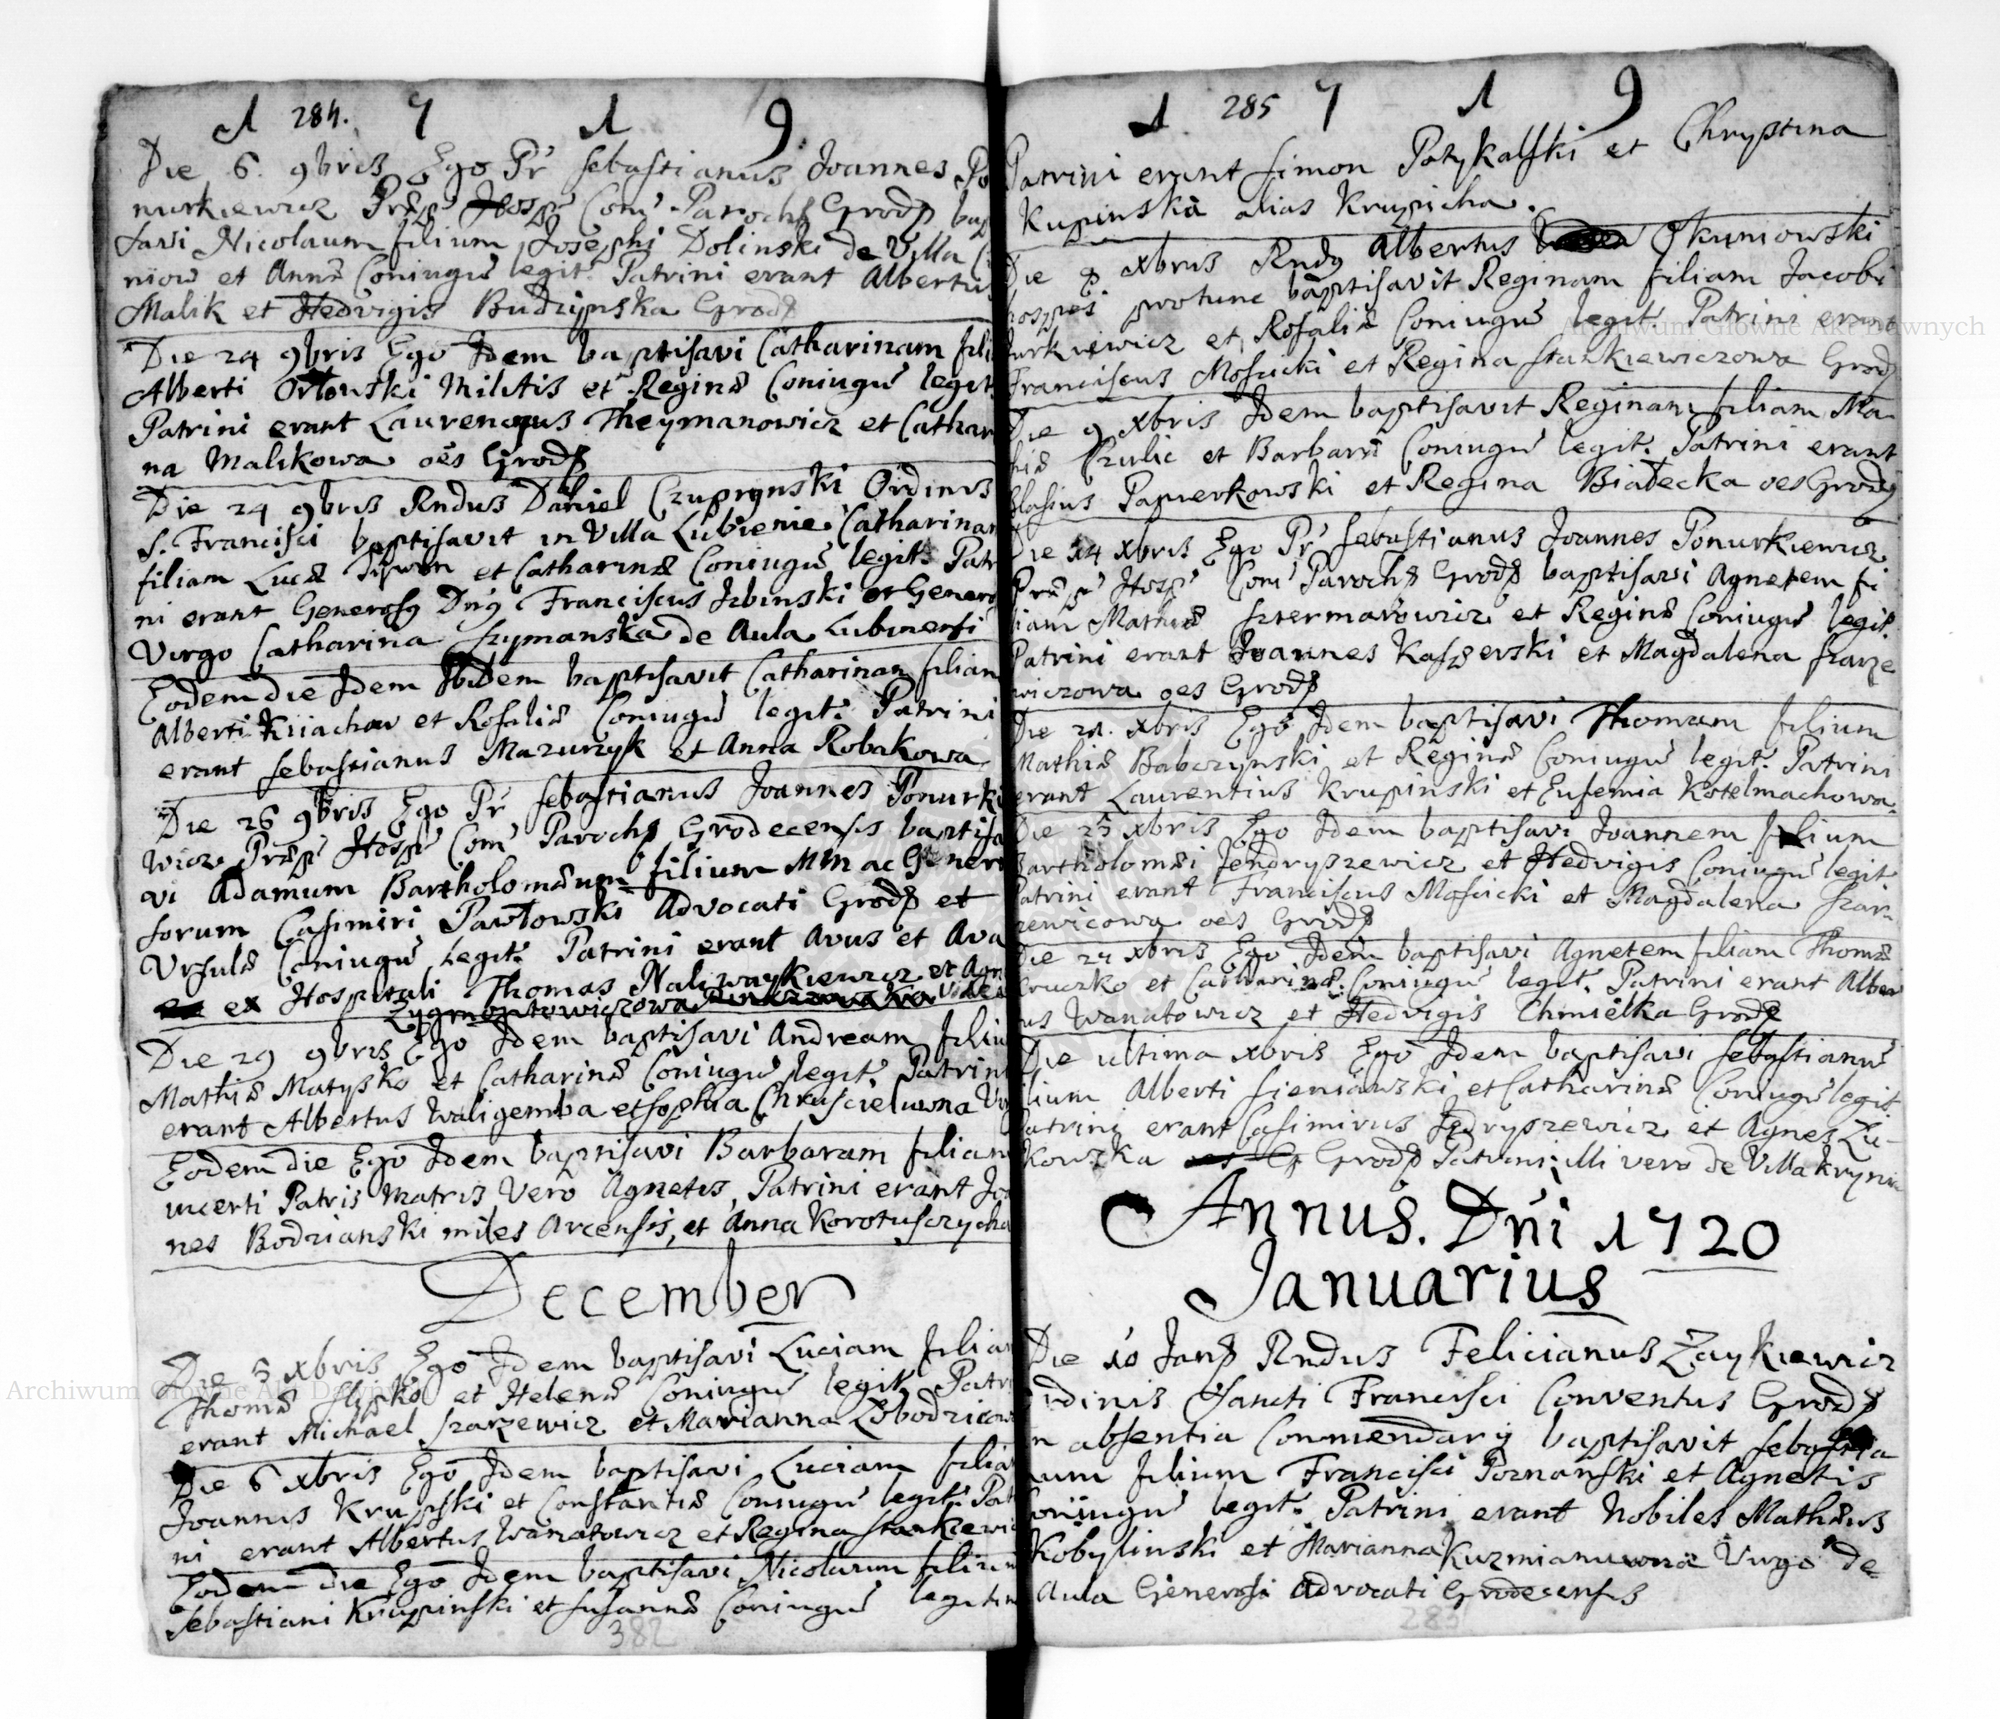 1 284. 7 1 9
Die 6. 9bris Ego Pr Sebastianus Joannes Po
nurkiewicz Com Paroch Grod bap
savi Nicolaum filium Josephi Dolinski de Villa
niow et Anna Coniugu legit. Patrini erant Albertus
Malik et Hedvigis Budzynska Grod
Die 24 9bris Ego Idem baptisavi Catharinam fili
Alberti Orłowski Militis et Regina Coniugu legit
Patrini erant Laurentius Theymanowicz et Cathari
na Malikowa oes Grod
Die 24 9bris Rndus Daniel Czuprynski Ordinis
S. Francisci baptisavit in Villa Lubienie Catharinam
filiam Luca et Catharina Coniugu legit. Patri
ni erant Generosg Dng Franciscus Izbinski et Genero
Virgo Catharina Szymanska de Aula Lubinensi
Eodem die Idem Ibidem baptisavit Catharinam filiam
Alberti Kiiachow et Rosalia Coniugu legit. Patrini
erant Sebastianus Mazurzyk et Anna Robakowa
Die 26 9bris Ego Pr Sebastianus Joannes Ponurkie
wicz Com Paroch Grodecensis baptisa
vi Adamum Bartholomaeum filium MM ac Genero
sorum Casimiri Pawłowski Advocati Grod et
Ursula Coniugu Legit. Patrini erant Avus et Ava
ex Hospitali Thomas Naliwaykiewicz et Agn
Zygmontowiczowa
Die 29 9bris Ego Idem baptisavi Andream filiu
Mathia Matysko et Catharina Coniugu legit. Patrini
erant Albertus Waligemba et Sophia Chruscielowna Vir
Eodem die Ego Idem baptisavi Barbaram filiam
incerti Patris Matris Vero Agnetis, Patrini erant Joa
nes Bodzianski miles Arcensis, et Anna Korotusczycha
December
Die 5 xbris Ego Idem baptisavi Luciam filiam
Thoma et Helena Coniugu legit Patri
erant Michael Szarzewicz et Marianna Łobodzicow
Die 6 xbris Ego Idem baptisavi Luciam filiam
Joannis Krupski et Constantia Coniugu legit. Pat
ni erant Albertus Wanatowicz et Regina Stankiewic
Eodem die Ego Idem baptisavi Nicolaum filium
Sebastiani Krupinski et Susanna Coniugu legitim
382
1 285 7 1 9
Patrini erant Simon Patykalski et Chrystina
Kupinska alias Krupicha.
Die 8. xbris Rndg Albertus Okuniowski
hospes protunc baptisavit Reginam filiam Jacobi
urkiewicz et Rosalia Coniugu legit. Patrini erant
Franciscus Moscicki et Regina Stankiewiczowa Grod
Die 9 xbris Idem baptisavit Reginam filiam Ma
thia Czulic et Barbara Coniugu legit. Patrini erant
Blasius Papierkowski et Regina Białecka oes Grod
Die 14 xbris Ego Pr Sebastianus Joannes Ponurkiewicz
Com Paroch Grod baptisavi Agnetem fi
liam Mathia Szermarowicz et Regina Coniugu legit.
Patrini erant Joannes Kasperski et Magdalena Szarze
wiczowa oes Grod
Die 21. xbris Ego Idem baptisavi Thomam filium
Mathia Babczynski et Regina Coniugu legit. Patrini
erant Laurentius Krupinski et Eufemia Kotelmachowa.
Die 25 xbris Ego Idem baptisavi Joannem filium
Bartholomai Jendryszewicz et Hedvigis Coniugu legit
Patrini erant Franciscus Moscicki et Magdalena Szar
zewicowa oes Grod
Die 27 xbris Ego Idem baptisavi Agnetem filiam Thoma
Kruczko et Catharina Coniugu legit. Patrini erant Alber
us Wanatowicz et Hedvigis Chmielka Grod
Die ultima xbris Ego Idem baptisavi Sebastianu
lium Alberti Sieniawski et Catharina Coniugu legit.
Patrini erant Casimirus Jedryszewicz et Agnes Zu-
kowska Grod Patrini illi vero de Villa Krynic
Annus. Dni 1720
Januarius
Die 10 Jan Rndus Felicianus Zaykiewicz
Ordinis Sancti Francisci Conventus Grod
in absentia Commendarij baptisavit Sebastia
num filium Francisci Poznanski et Agnetis
Coniugu legit. Patrini erant Nobiles Mathaus
Kobylinski et Marianna Kuzmianuwna Virgo de
Aula Generosi Advocati Grodecensis
283
Archiwum Główne Akt Dawnych
Archiwum Główne Akt Dawnych